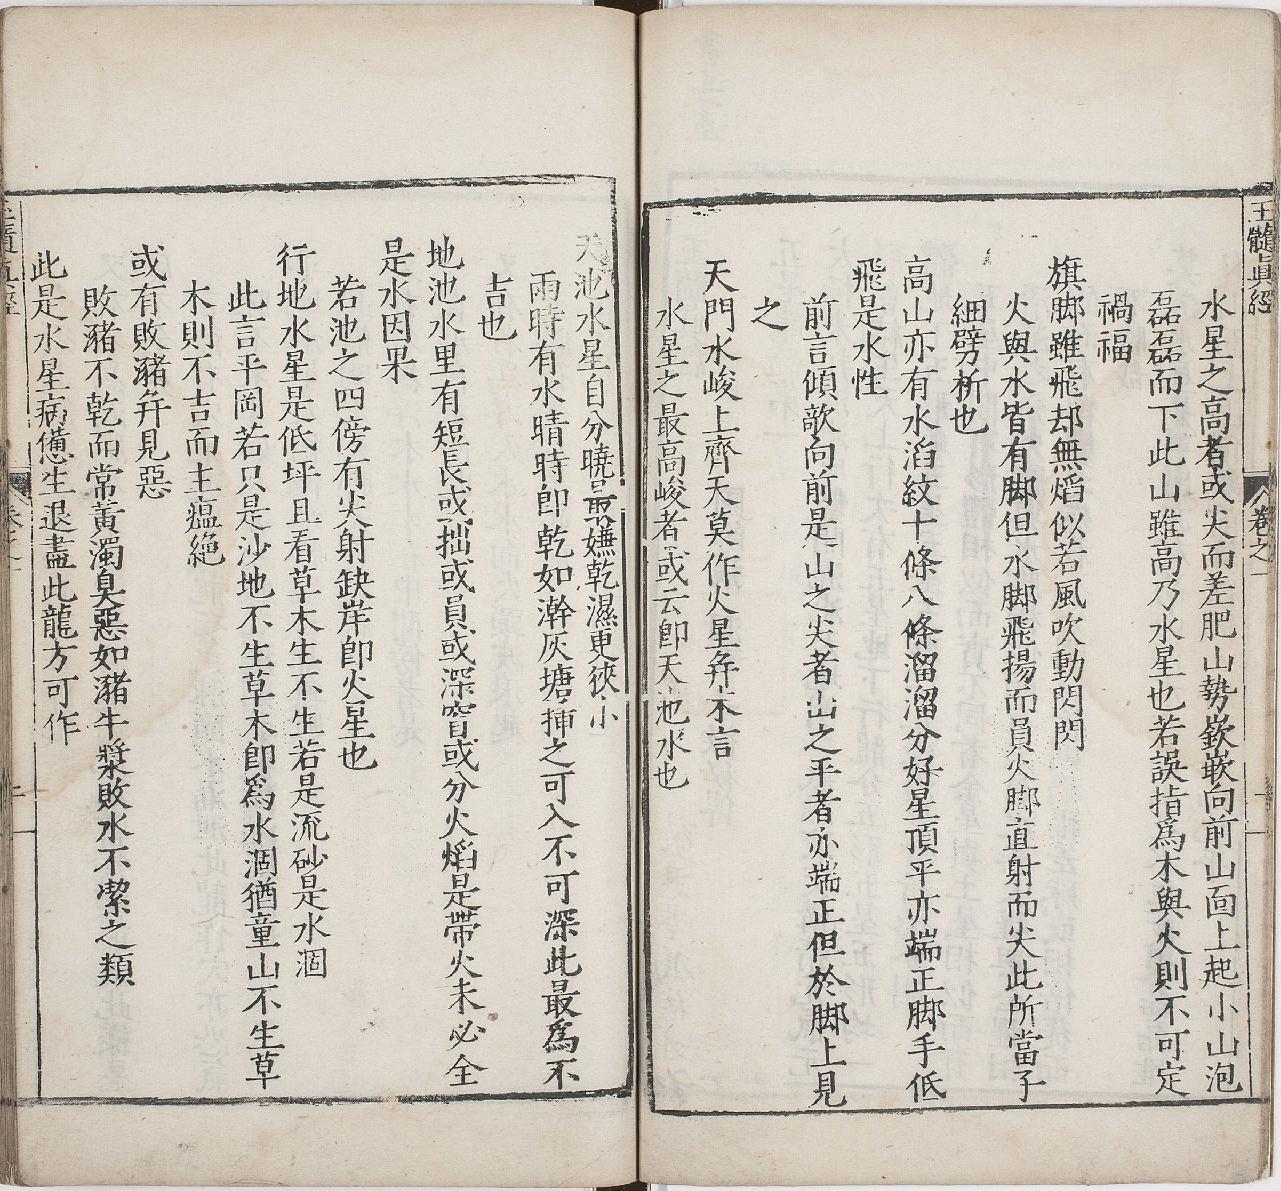 玉髓眞經
卷之一
水星之高者或尖而差肥山勢嶔嵌向前山面上起小山泡
磊磊而下此山雖高乃水星也若誤指爲木與火則不可定
禍福
旗脚雖飛却無焰似若風吹動閃閃
火與水皆有脚但水脚飛揚而員火脚直射而尖此所當子
細劈析也
高山亦有水滔紋十條八條溜溜分好星頂平亦端正脚手低
飛是水性
前言傾欹向前是山之尖者山之平者亦端正但於脚上見
之
天門水峻上齊天莫作火星弁木言
水星之最高峻者或云卽天池水也
天池水星自分曉最嫌乾濕更狹小
雨時有水晴時卽乾如澣灰塘揷之可入不可深此最爲不
吉也
地池水里有短長或拙或員或深窅或分火焰是帶火未必全
是水因果
若池之四傍有尖射缺岸卽火星也
行地水星是低坪且看草木生不生若是流砂是水涸
此言平岡若只是沙地不生草木卽爲水涸猶童山不生草
木則不吉而主瘟絶
或有敗瀦弁見惡
敗瀦不乾而常黃濁臭惡如瀦牛漿敗水不潔之類
此是水星病憊生退盡此龍方可作